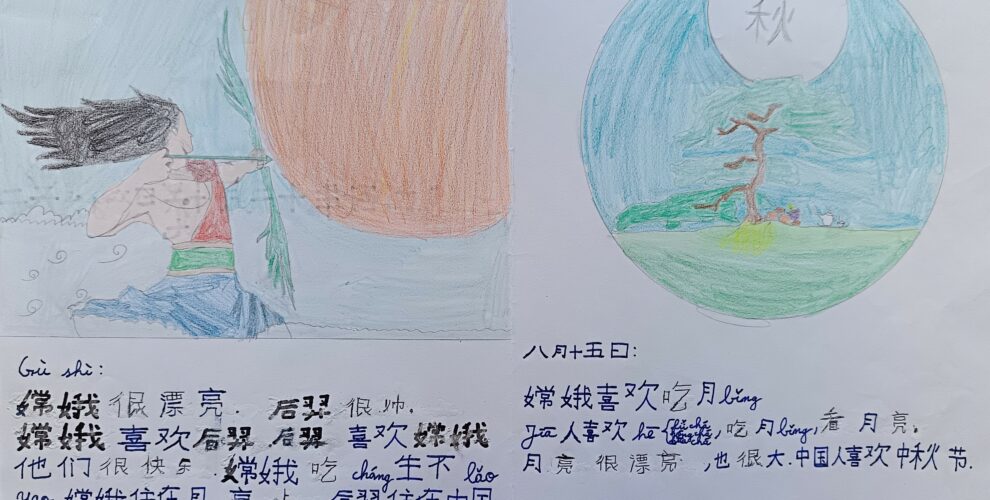 Gù shì:
嫦娥很漂亮. 后羿很帅.
嫦娥喜欢后羿 后羿喜欢嫦娥
他们很快乐 嫦娥吃 cháng生不 lǎo
yao 嫦娥住在月亮上 后羿住在中国
秋
八月十五日:
嫦娥喜欢吃月bǐng
Jiā人喜欢 hē , 吃月bǐng, 看月亮.
月亮很漂亮, 也很大. 中国人喜欢中秋节.